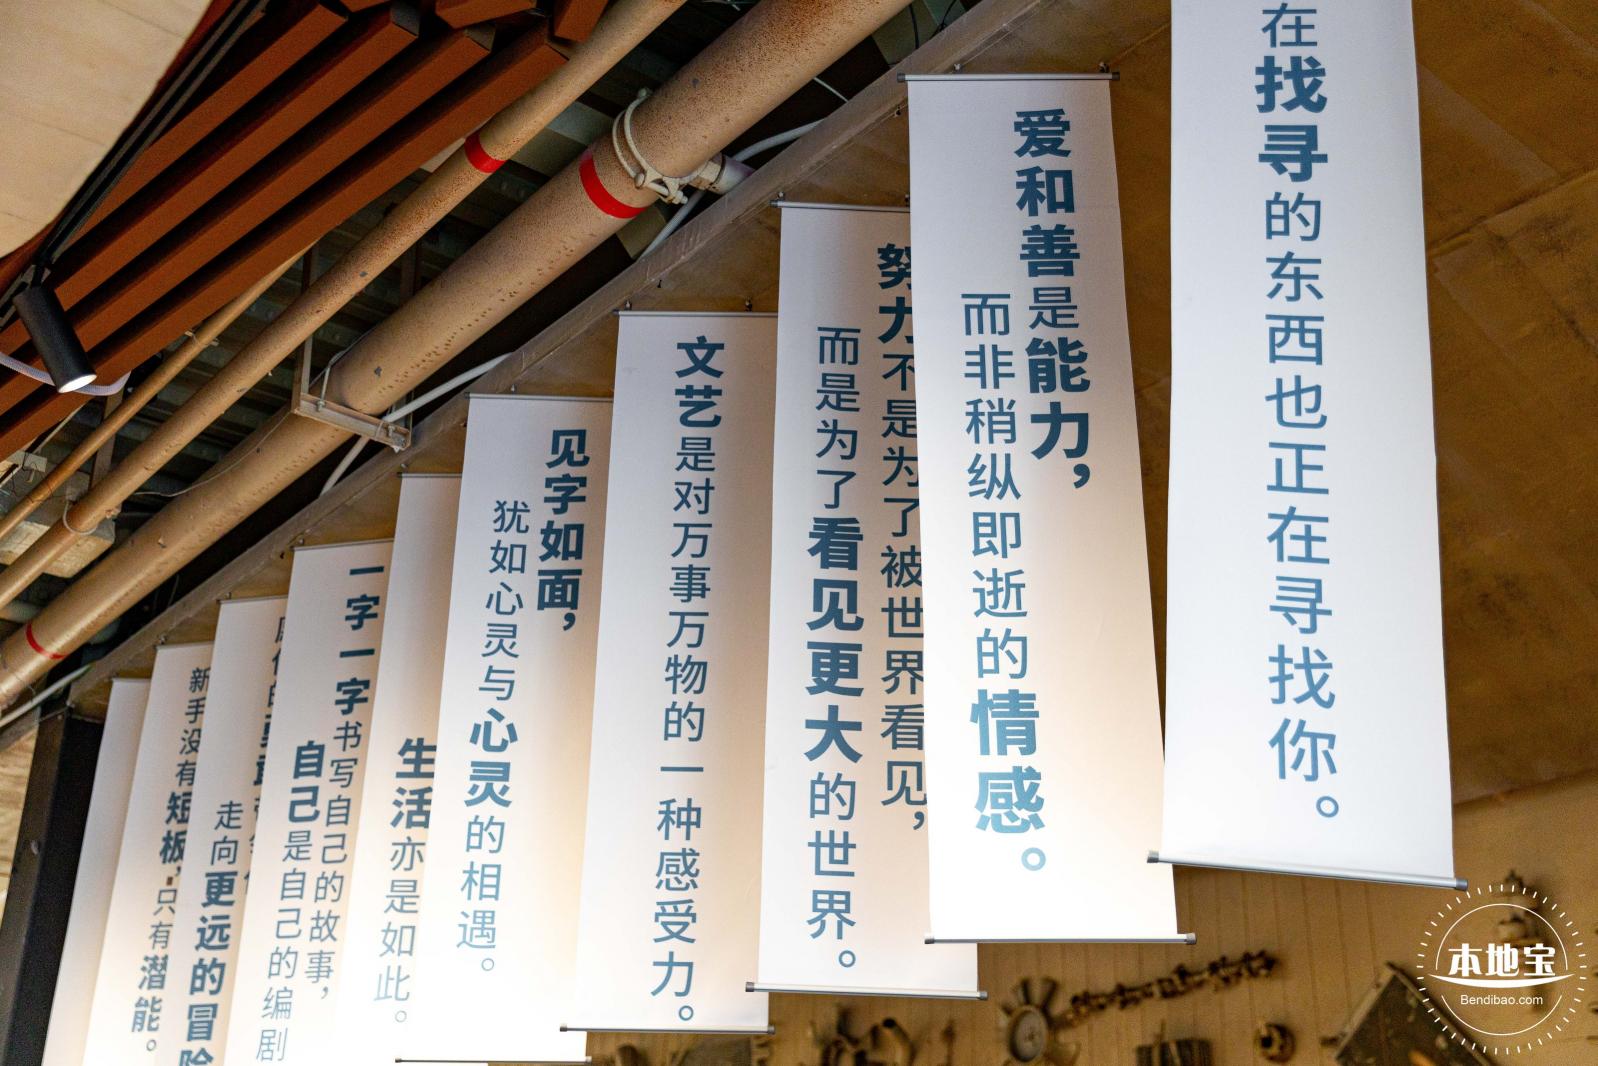 在找寻的东西也正在寻找你。
爱和善是能力，
而非稍纵即逝的情感。
努力不是为了被世界看见，
而是为了看见更大的世界。
文艺是对万事万物的一种感受力。
见字如面，
犹如心灵与心灵的相遇。
生活亦是如此。
一字一字书写自己的故事，
自己是自己的编剧
走向更远的冒险
新手没有短板，只有潜能。
本地宝
Bendibao.com